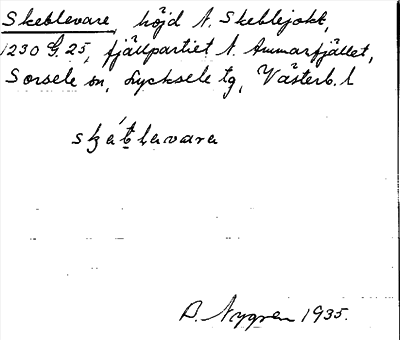 Skeblevare, höjd N. Skeblejokk,
1230 G. 25, fjällpartiet N. Ammarfjället,
Sorsele sn, Lycksele tg, Västerb. l
B. Nygren 1935.